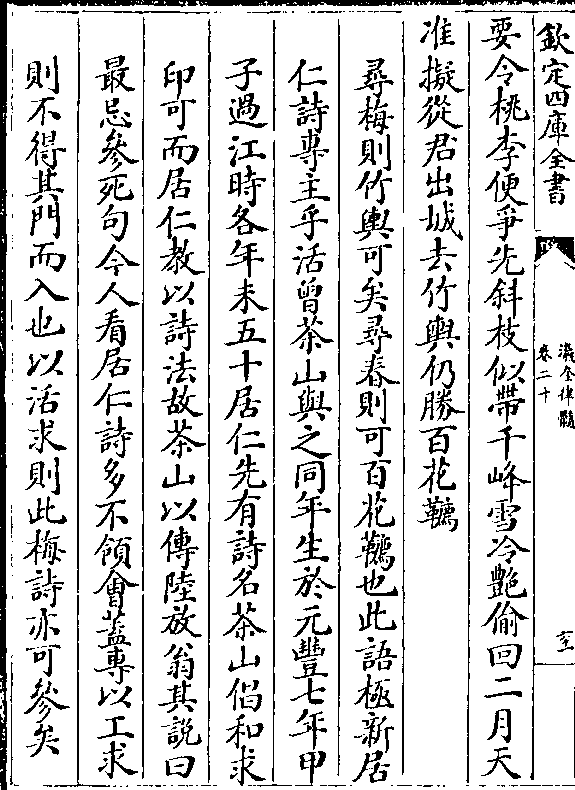 欽定四庫全書
瀛奎律髓
卷二十
要令桃李便爭先斜枝似帶千峰雪冷艷偷回二月天
准擬從君出城去竹輿仍勝百花韉
尋梅則竹輿可矣尋春則可百花韉也此語極新居
仁詩専主乎活曾茶山與之同年生於元豐七年甲
子過江時各年未五十居仁先有詩名茶山倡和求
印可而居仁教以詩法故茶山以傳陸放翁其説曰
最忌參死句今人看居仁詩多不領會葢専以工求
則不得其門而入也以活求則此梅詩亦可參矣